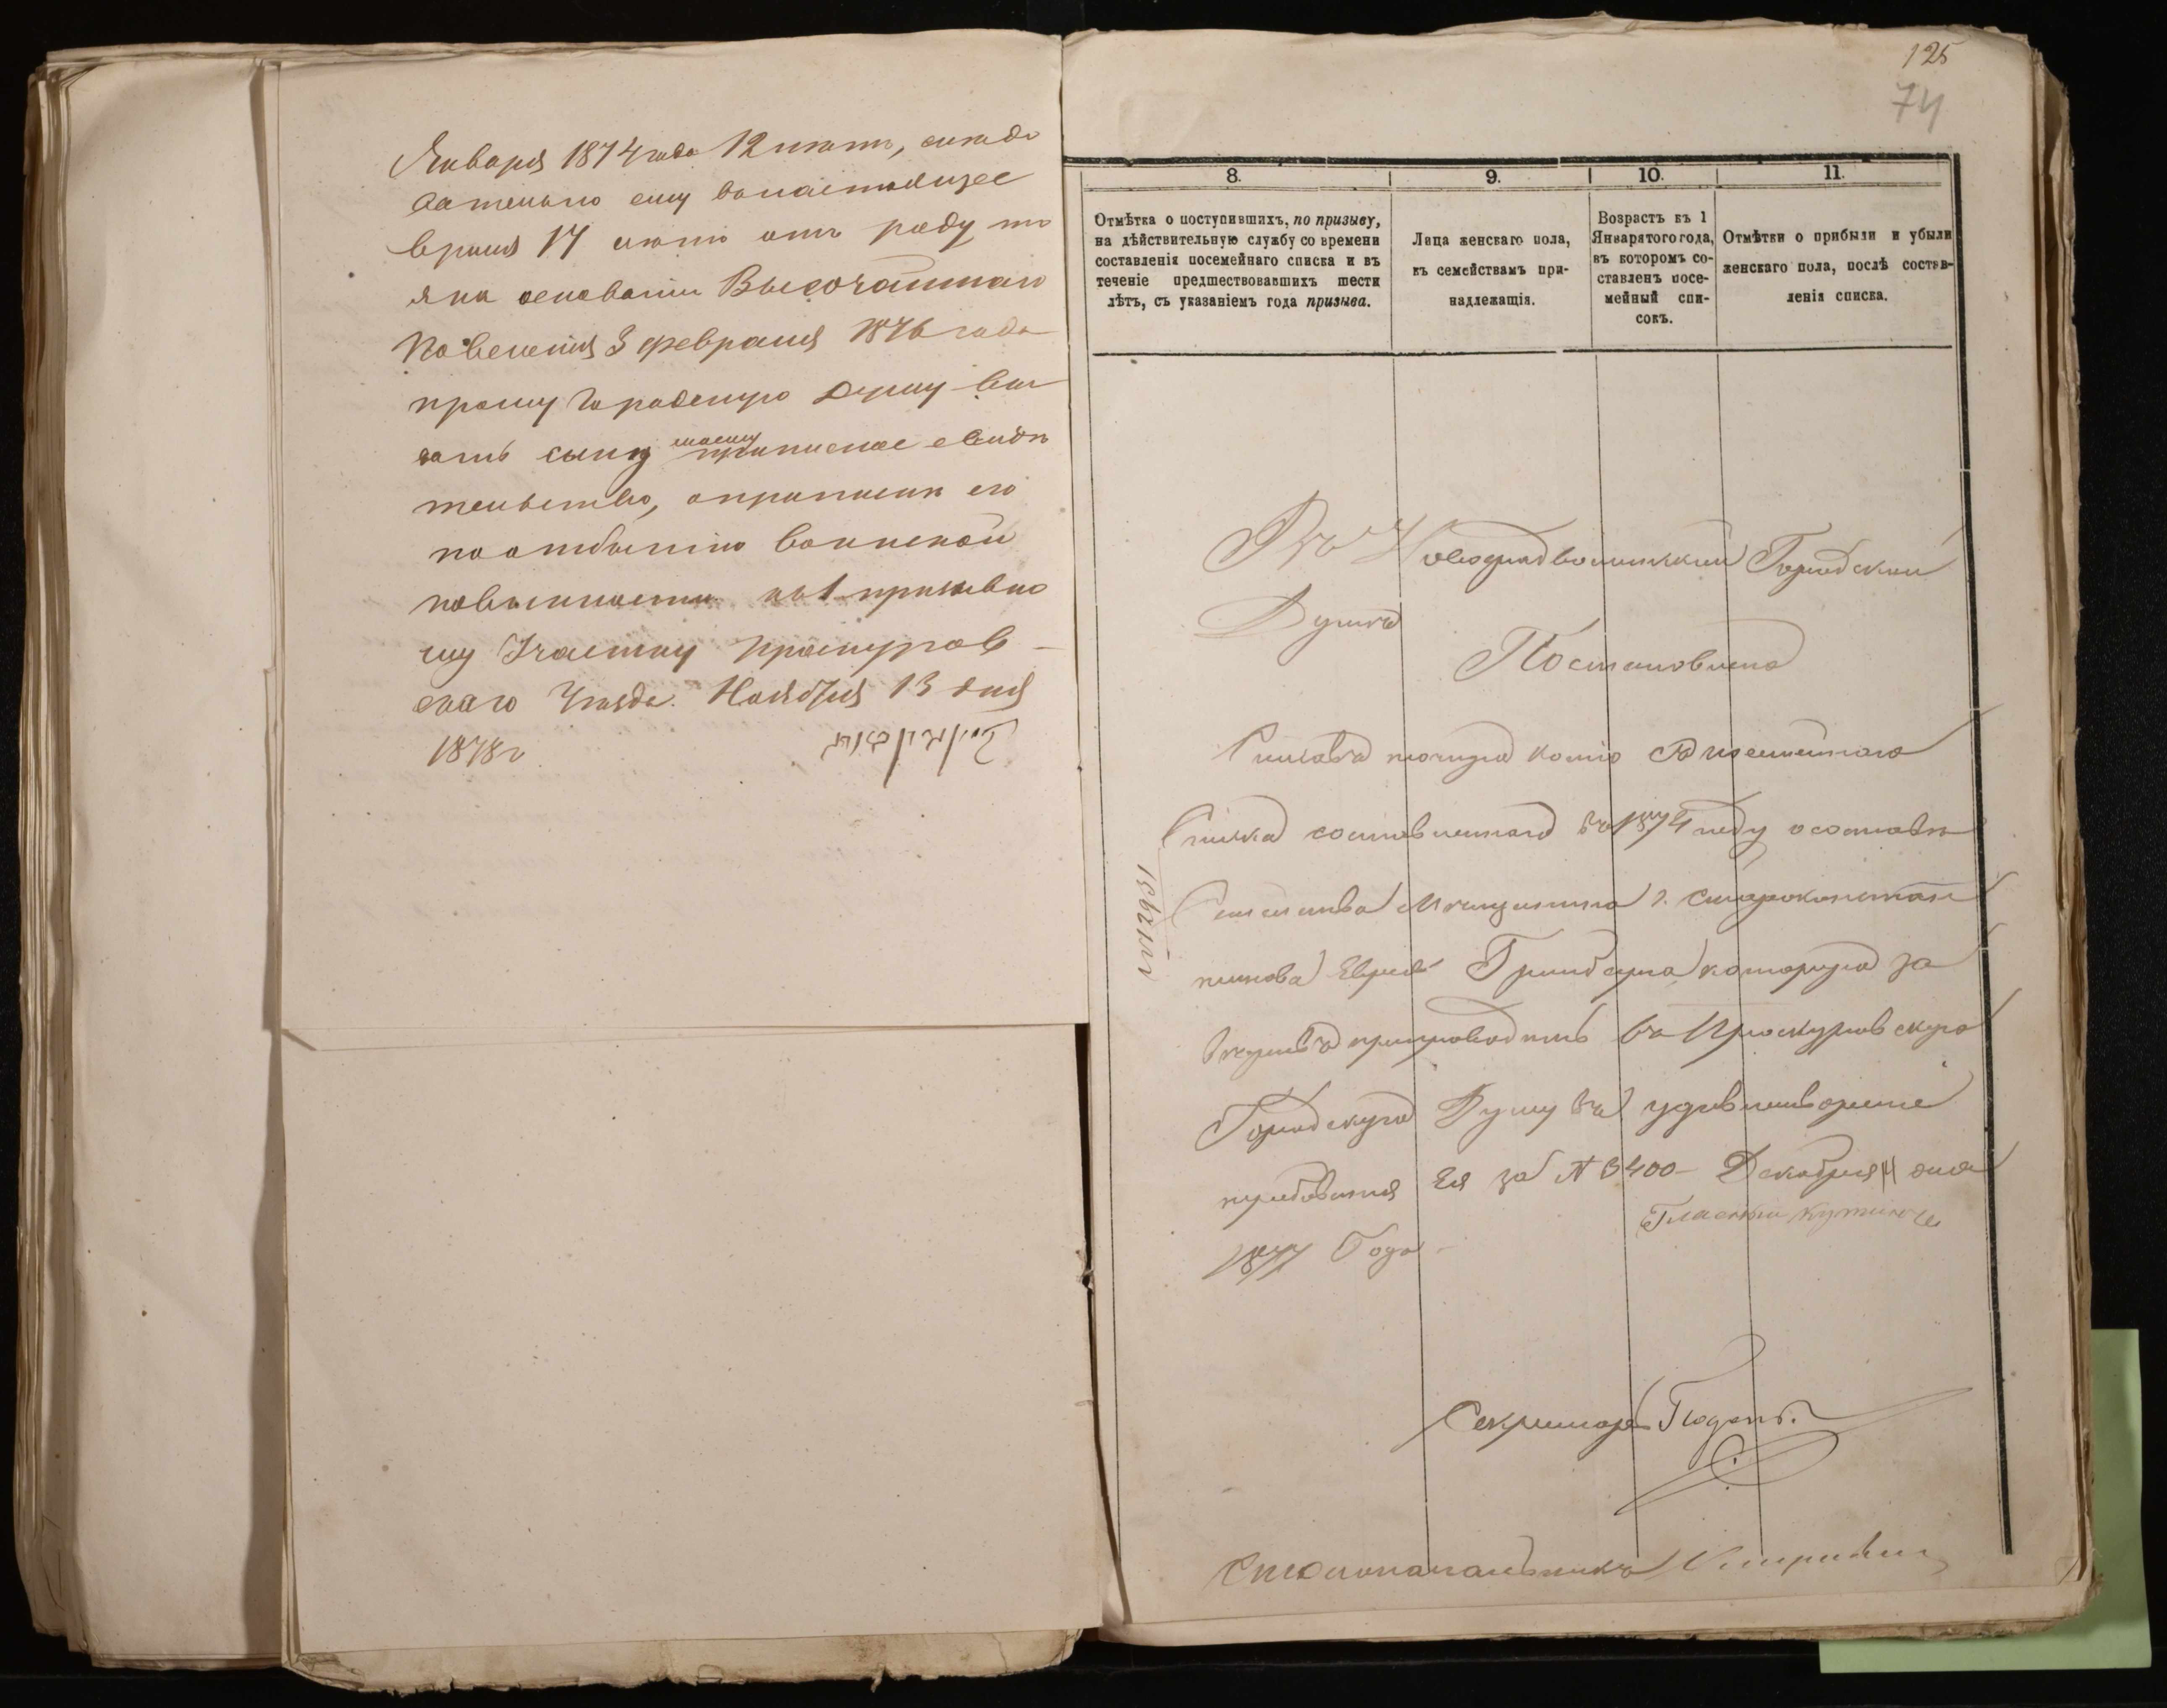 Января 1874 года 12 летъ, слѣдо
вательно ему въ настоящее
время 17 лѣтъ отъ роду то
я на основаніи Высочайшаго
Повеленія 3 февраля 1876 года
прошу Городскую Думу вы
дать сыну моему приписное свидѣ
тельство, о приписке его
по отбытію воинской
повинности къ 1 призывно
му Участку Проскуров-
скаго Уезда. Ноября 13 дня
1878 г.
125
74
8.
9.
10.
11.
Отмѣтка о поступившихъ, по призыву,
на дѣйствительную службу со времени
составленія посемейнаго списка и въ
теченіе предшествовавшихъ шести
лѣтъ, съ указаніемъ года призыва.
Лица женскаго пола,
къ семействамъ при-
надлежащія.
Возрастъ къ 1
Января того года,
въ которомъ со-
ставленъ посе-
мейный спи-
сокъ.
Отмѣтки о прибыли и убыли
женскаго пола, послѣ состав-
ленія списка.
Въ Новоградволынской Городской
Думѣ
Постановлено
точную копію съ посемейнаго
Списка составленнаго въ 1874 году о составѣ
Семейства Мещанина г. Староконстан
тинова Еврея которую за
препроводить въ Проскуровскую
Городскую Думу въ удовлетвореніе
требованія Ея за № 3400 – Декабря 4 дня
Гласный
1877 Года –
Секретарь
Столоначальникъ